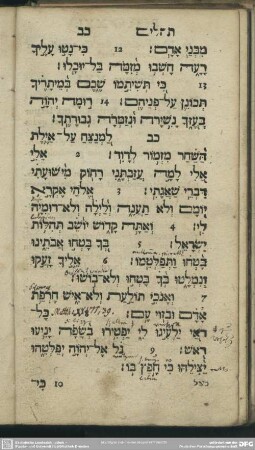 תהלים כב
מִבְּנֵי אָדָם׃ 12 כִּי־נָטוּ עָלֶיךָ
רָעָה חָשְׁבוּ מְזִמָּה בַּל־יוּכָלוּ׃
13 כִּי תְּשִׁיתֵמוֹ שֶׁכֶם בְּמֵיתָרֶיךָ
תְּכוֹנֵן עַל־פְּנֵיהֶם׃ 14 רוּמָה יְהוָה
בְּעֻזֶּךָ נָשִׁירָה וּנְזַמְּרָה גְּבוּרָתֶךָ׃
כב לַמְנַצֵּחַ עַל־אַיֶּלֶת
הַשַּׁחַר מִזְמוֹר לְדָוִד׃ 2 אֵלִי
אֵלִי לָמָה עֲזַבְתָּנִי רָחוֹק מִישׁוּעָתִי
דִּבְרֵי שַׁאֲגָתִי׃ 3 אֱלֹהַי אֶקְרָא
יוֹמָם וְלֹא תַעֲנֶה וְלַיְלָה וְלֹא־דוּמִיָּה
לִי׃ 4 וְאַתָּה קָדוֹשׁ יוֹשֵׁב תְּהִלּוֹת
יִשְׂרָאֵל׃ 5 בְּךָ בָּטְחוּ אֲבֹתֵינוּ
בָּטְחוּ וַתְּפַלְּטֵמוֹ׃ 6 אֵלֶיךָ זָעֲקוּ
וְנִמְלָטוּ בְּךָ בָטְחוּ וְלֹא־בוֹשׁוּ׃
7 וְאָנֹכִי תוֹלַעַת וְלֹא־אִישׁ חֶרְפַּת
אָדָם וּבְזוּי עָם׃ 8 כָּל־
רֹאַי יַלְעִגוּ לִי יַפְטִירוּ בְשָׂפָה יָנִיעוּ
רֹאשׁ׃ 9 גֹּל אֶל־יְהוָה יְפַלְּטֵהוּ
יַצִּילֵהוּ כִּי חָפֵץ בּוֹ׃
10 כִּי־